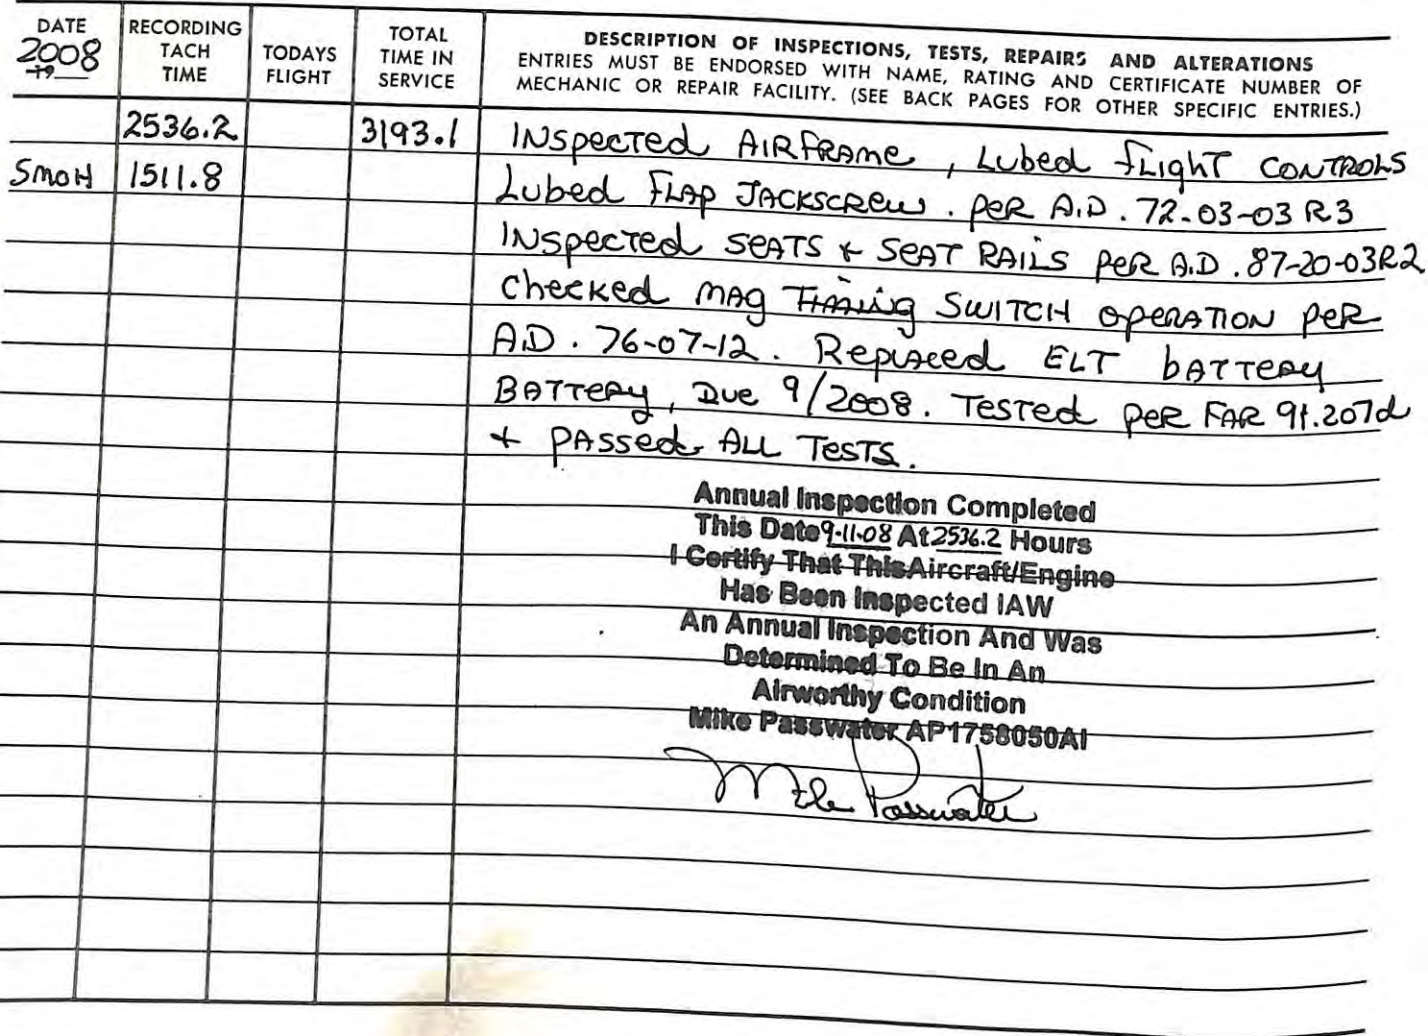 DATE RECORDING TACH TIME TODAYS FLIGHT TOTAL TIME IN SERVICE DESCRIPTION OF INSPECTIONS, TESTS, REPAIRS AND ALTERATIONS
2008 19 ENTRIES MUST BE ENDORSED WITH NAME, RATING AND CERTIFICATE NUMBER OF
MECHANIC OR REPAIR FACILITY. (SEE BACK PAGES FOR OTHER SPECIFIC ENTRIES.)
2536.2 3193.1 INSPECTED AIRFRAME, LUBED FLIGHT CONTROLS
SMOH 1511.8 LUBED FLAP JACKSCREW. PER A.D. 72-03-03 R3
INSPECTED SEATS & SEAT RAILS PER A.D. 87-20-03R2
CHECKED MAG TIMING SWITCH OPERATION PER
A.D. 76-07-12. REPLACED ELT BATTERY
BATTERY, DUE 9/2008. TESTED PER FAR 91.207d
& PASSED ALL TESTS.
Annual Inspection Completed
This Date 9-11-08 At 2536.2 Hours
I Certify That This Aircraft/Engine
Has Been Inspected IAW
An Annual Inspection And Was
Determined To Be In An
Airworthy Condition
Mike Passwater AP1758050AI
Mike Passwater